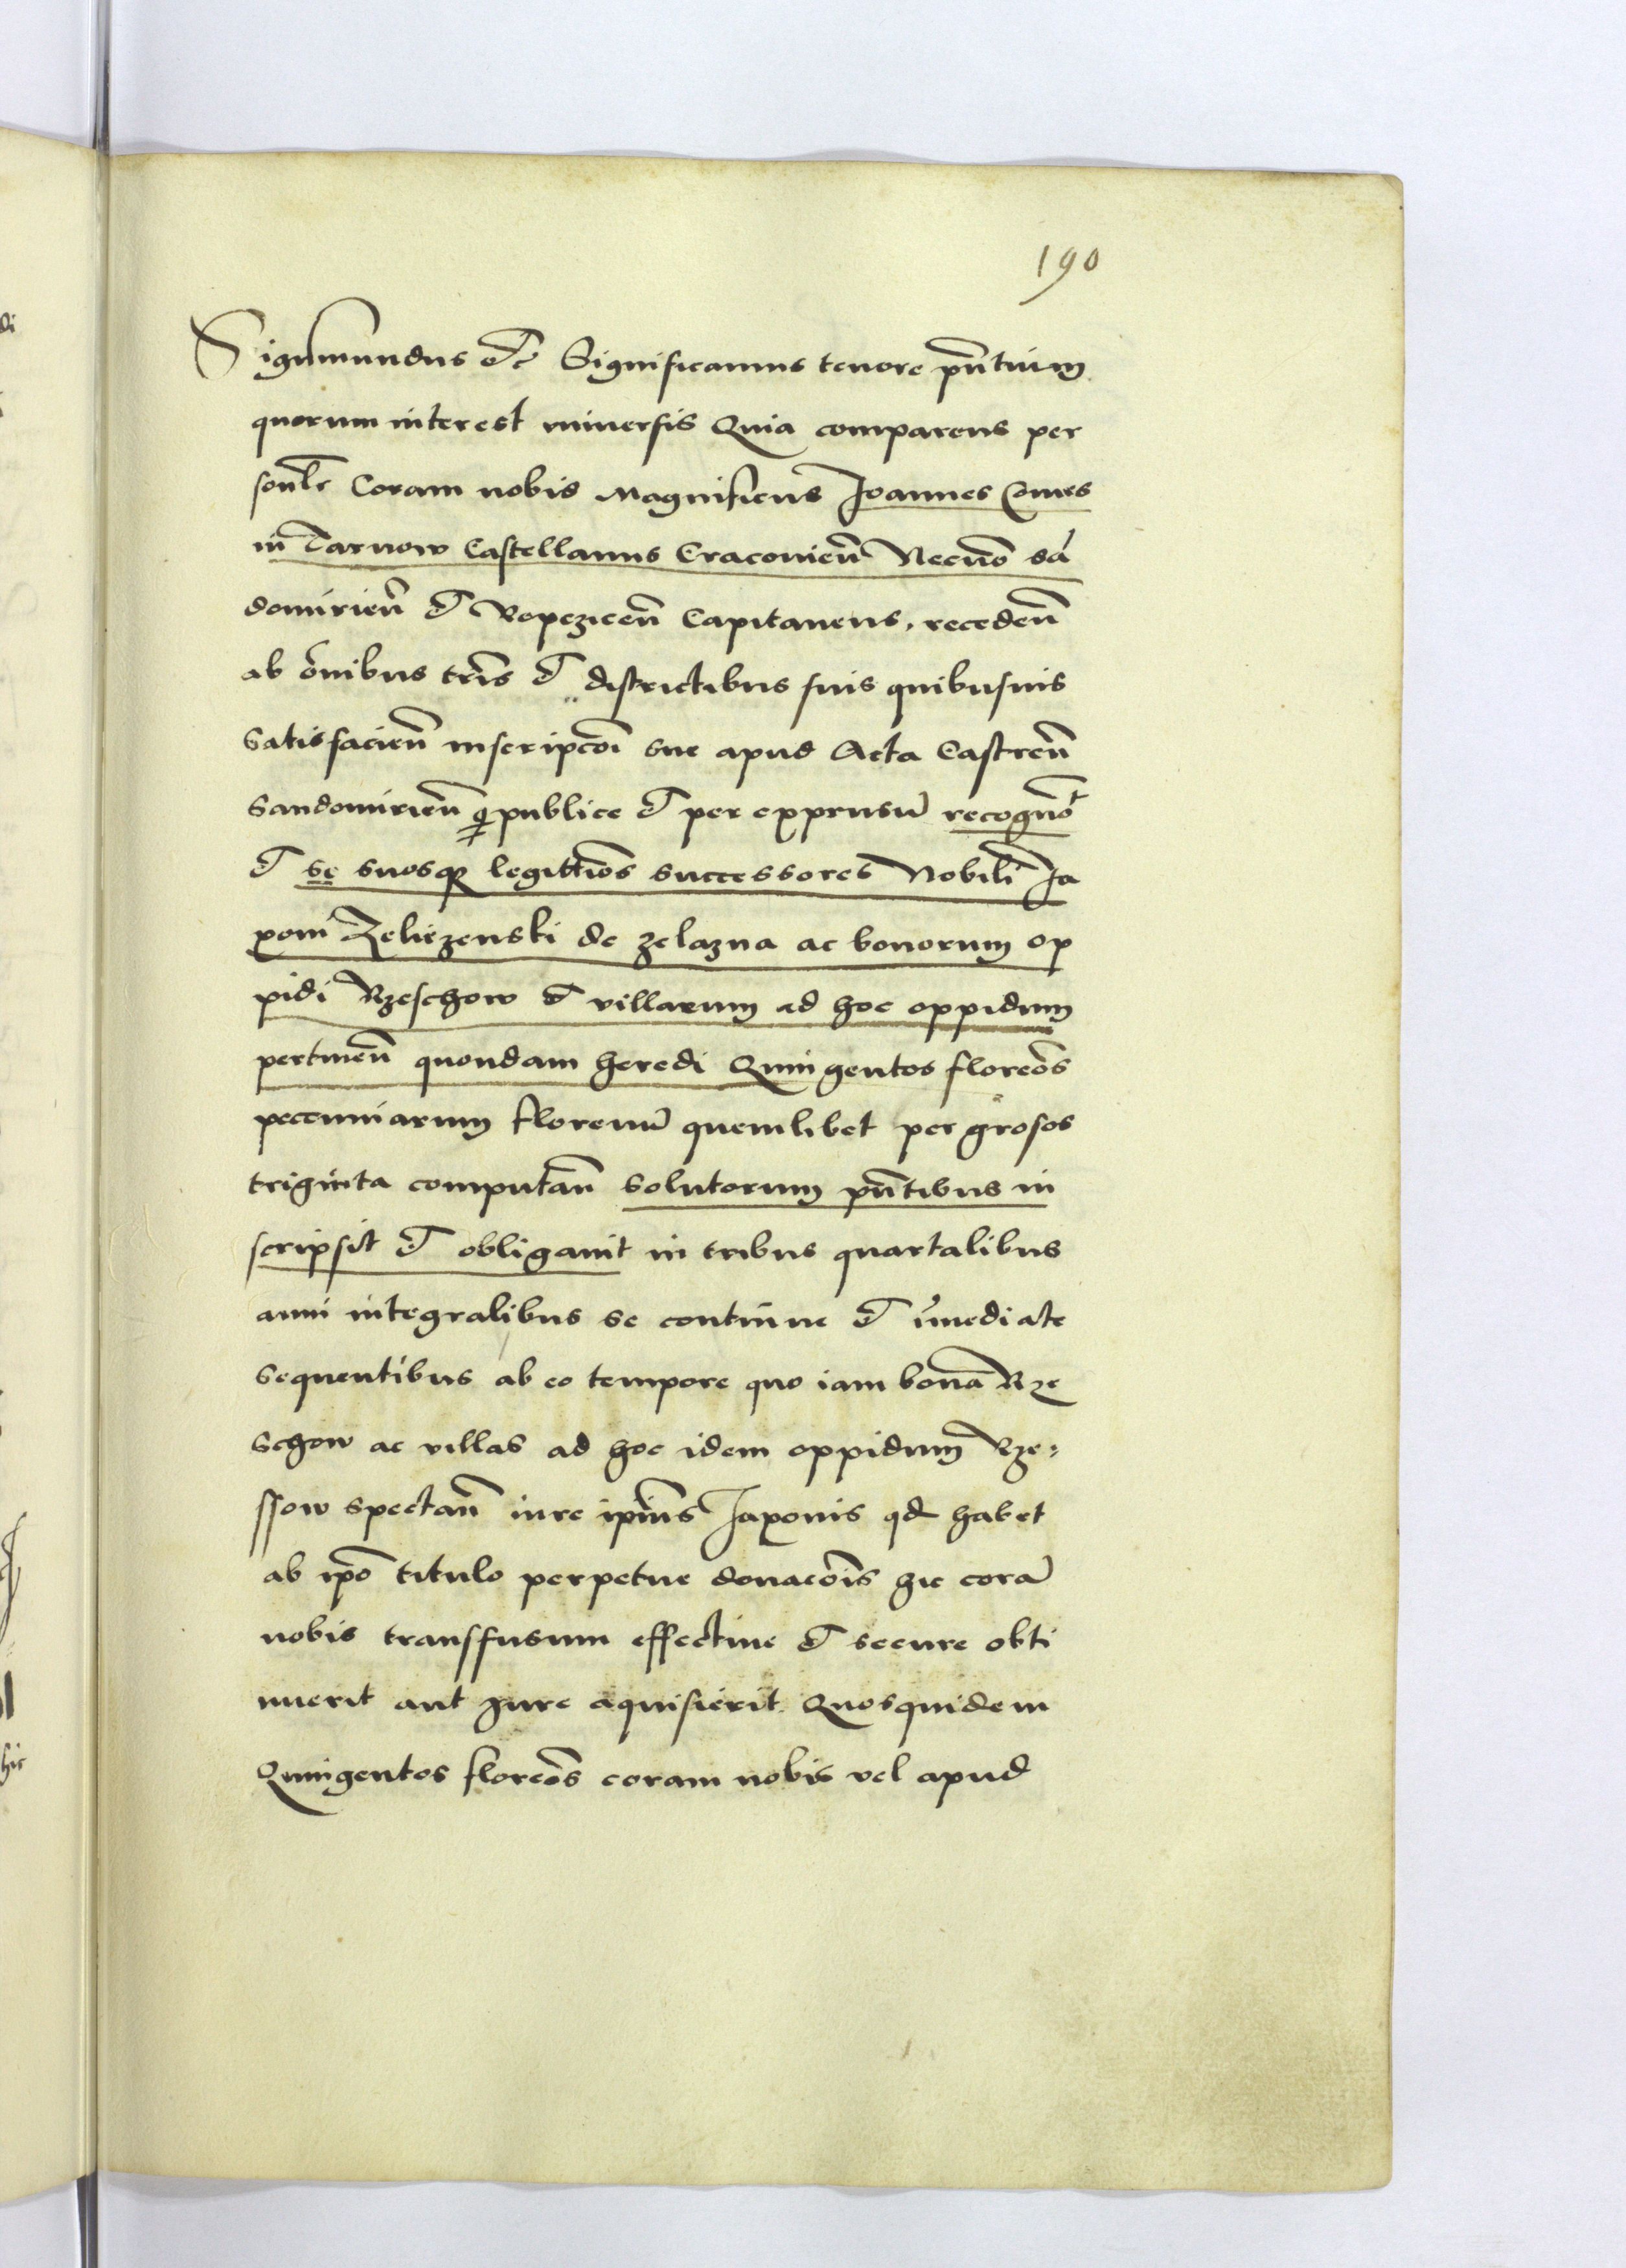 190
Sigismundus etc Significamus tenore pn̄tium
quorum interest universis Quia comparens per
sonl̄r Coram nobis Magnificus Joannes Comes
in Tarnow Castellanus Cracovien̄ Necno͞ Sa͞
domirien̄ et Ropczicen̄ Capitaneus, receden̄
ab o͞nibus tr̄is et districtibus suis quibusvis
satisfacien̄ inscripco͞i sue apud Acta Castren̄
Sandomirien̄ publice et per expressu͞ recogno͞t
et se suosq legitti͞os successores Nobili͞ Ja
xoni Zeliezenski de zelazna ac bonorum op
pidi Rzeschow et villarum ad hoc oppidum
pertinen̄ quondam heredi Quingentos floreo͞s
peccuniarum florenu͞ quemlibet per grosos
triginta computan̄ solutorum pn̄tibus in
scripsit et obligavit in tribus quartalibus
anni integralibus se continue et i͞mediate
sequentibus ab eo tempore quo iam bona͞ Rze
schow ac villas ad hoc idem oppidum Rze:
ssow spectan̄ iure ip̄ius Jaxonis qd habet
ab ip̄o titulo perpetue donaco͞is hic cora͞
nobis transfusum effective et secure obti
nuerit aut Jure aquisierit Quosquidem
Quingentos floreo͞s coram nobis vel apud